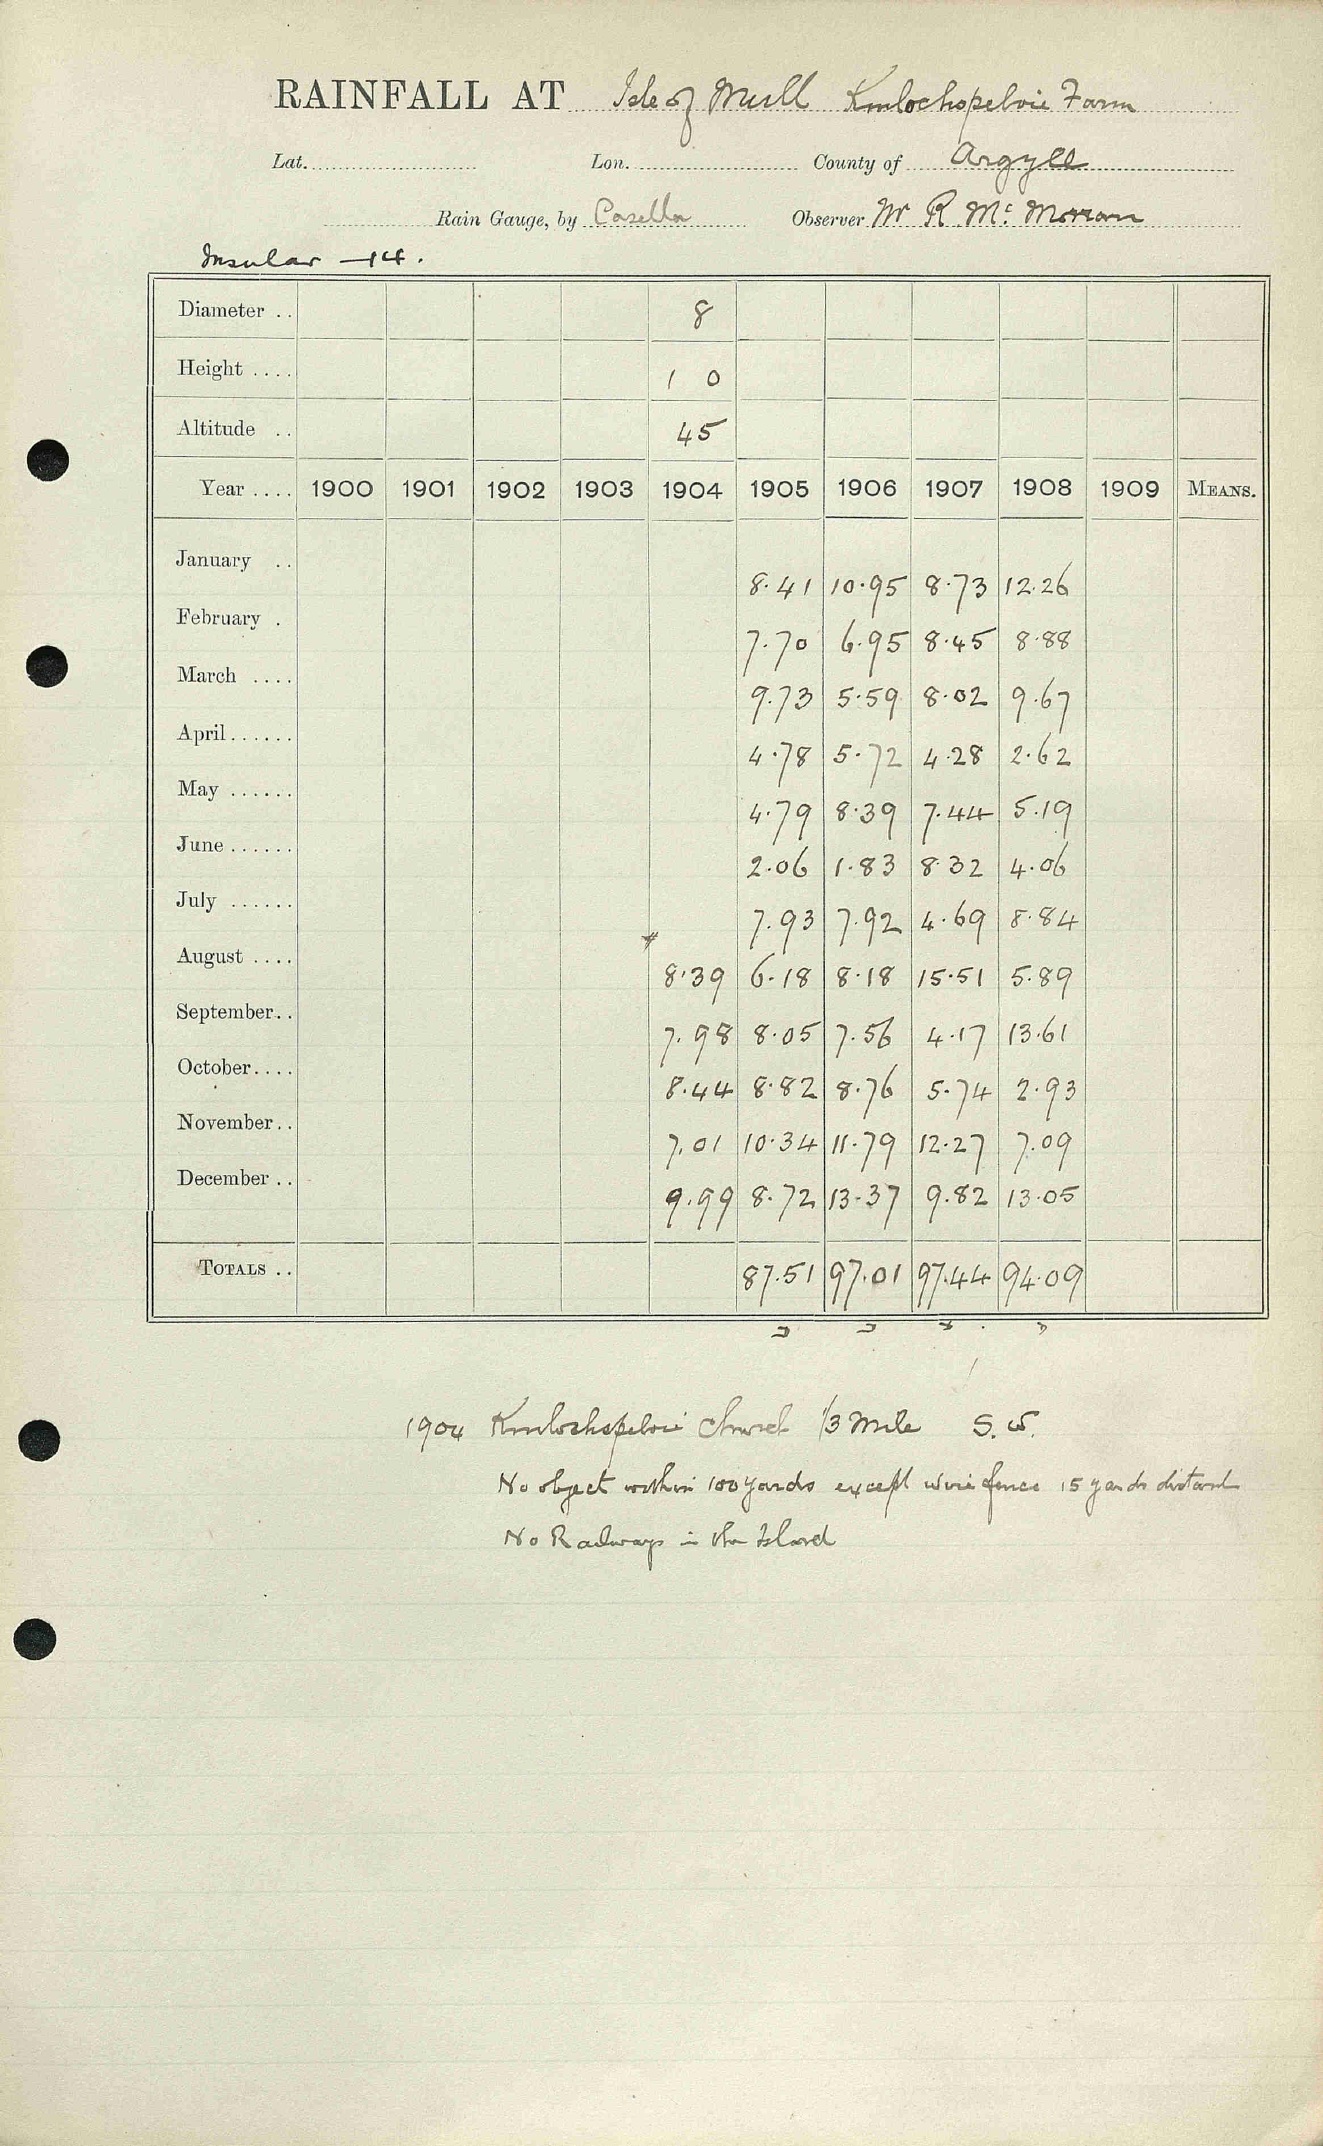 RAINFALL AT Isle of Mull Kinlochspelvie Farm
Lat. Lon. County of Argyll
Rain Gauge, by Casella Observer Mr R. Mc Morran
Insular —14.
Diameter .. 8
Height .... 1 0
Altitude .. 45
Year .... 1900 1901 1902 1903 1904 1905 1906 1907 1908 1909 MEANS.
January .. 8.41 10.95 8.73 12.26
February . 7.70 6.95 8.45 8.88
March .... 9.73 5.59 8.02 9.67
April ...... 4.78 5.72 4.28 2.62
May ...... 4.79 8.39 7.44 5.19
June ...... 2.06 1.83 8.32 4.06
July ...... 7.93 7.92 4.69 8.84
August .... 8.39 6.18 8.18 15.51 5.89
September .. 7.98 8.05 7.56 4.17 13.61
October .... 8.44 8.82 8.76 5.74 2.93
November .. 7.01 10.34 11.79 12.27 7.09
December .. 9.99 8.72 13.37 9.82 13.05
TOTALS .. 87.51 97.01 97.44 94.09
1904 Kinlochspelvie Church 1/3 Mile S.W.
No object within 100 yards except wire fence 15 yards distant
No Railways in the Island